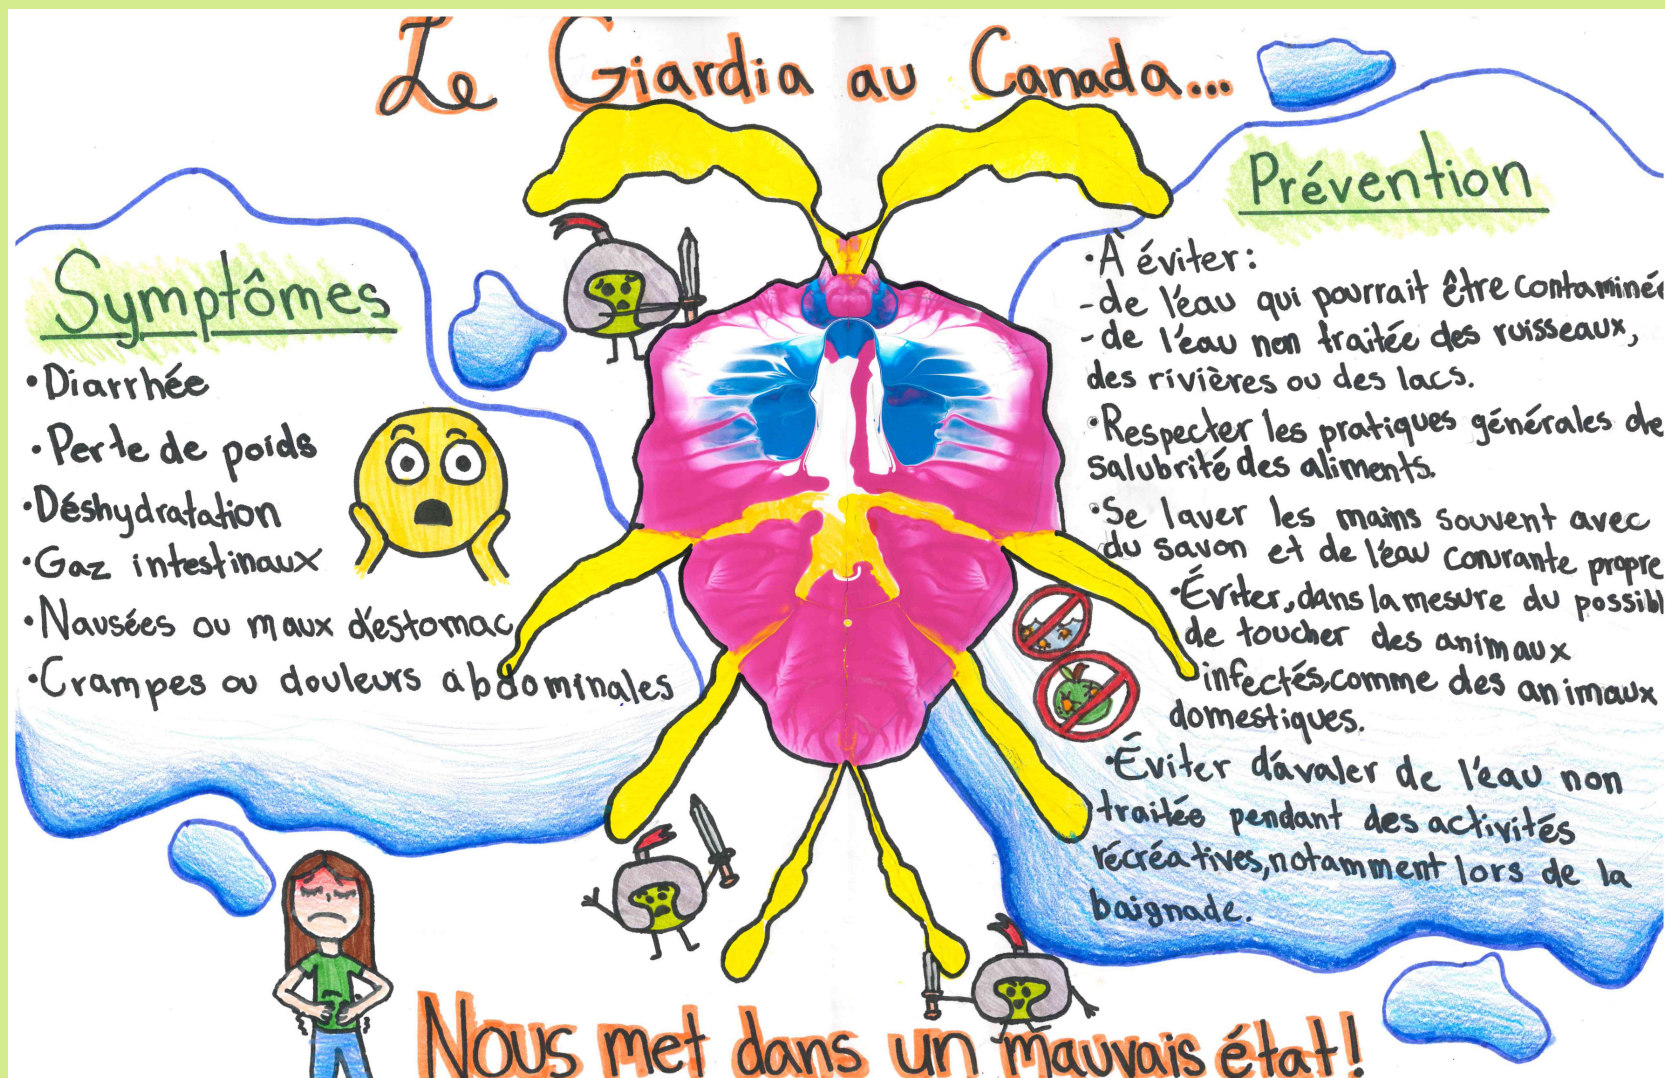 Le Giardia au Canada...
Symptômes
•Diarrhée
•Perte de poids
•Déshydratation
•Gaz intestinaux
•Nausées ou maux d'estomac
•Crampes ou douleurs abdominales
Prévention
•À éviter:
-de l'eau qui pourrait être contaminée
-de l'eau non traitée des ruisseaux,
des rivières ou des lacs.
•Respecter les pratiques générales de
salubrité des aliments.
•Se laver les mains souvent avec
du savon et de l'eau conurante propre
•Éviter, dans la mesure du possibl
de toucher des animaux
infectés, comme des animaux
domestiques.
•Éviter d'avaler de l'eau non
traitée pendant des activités
récréatives, notamment lors de la
baignade.
Nous met dans un mauvais état!